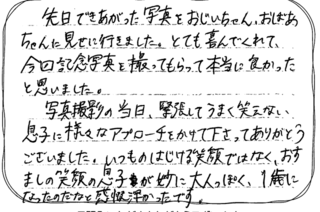 先日できあがった写真をおじいちゃん、おばあ
ちゃんに見せに行きました。とても喜んでくれて、
今回記念写真を撮ってもらって本当に良かった
と思いました。
写真撮影の当日、緊張してうまく笑えない
息子に様々なアプローチをかけて下さってありがとう
ございました。いつものはじける笑顔ではなく、おす
ましの笑顔の息子が妙に大人っぽく、1歳に
なったのだなと感慨深かったです。